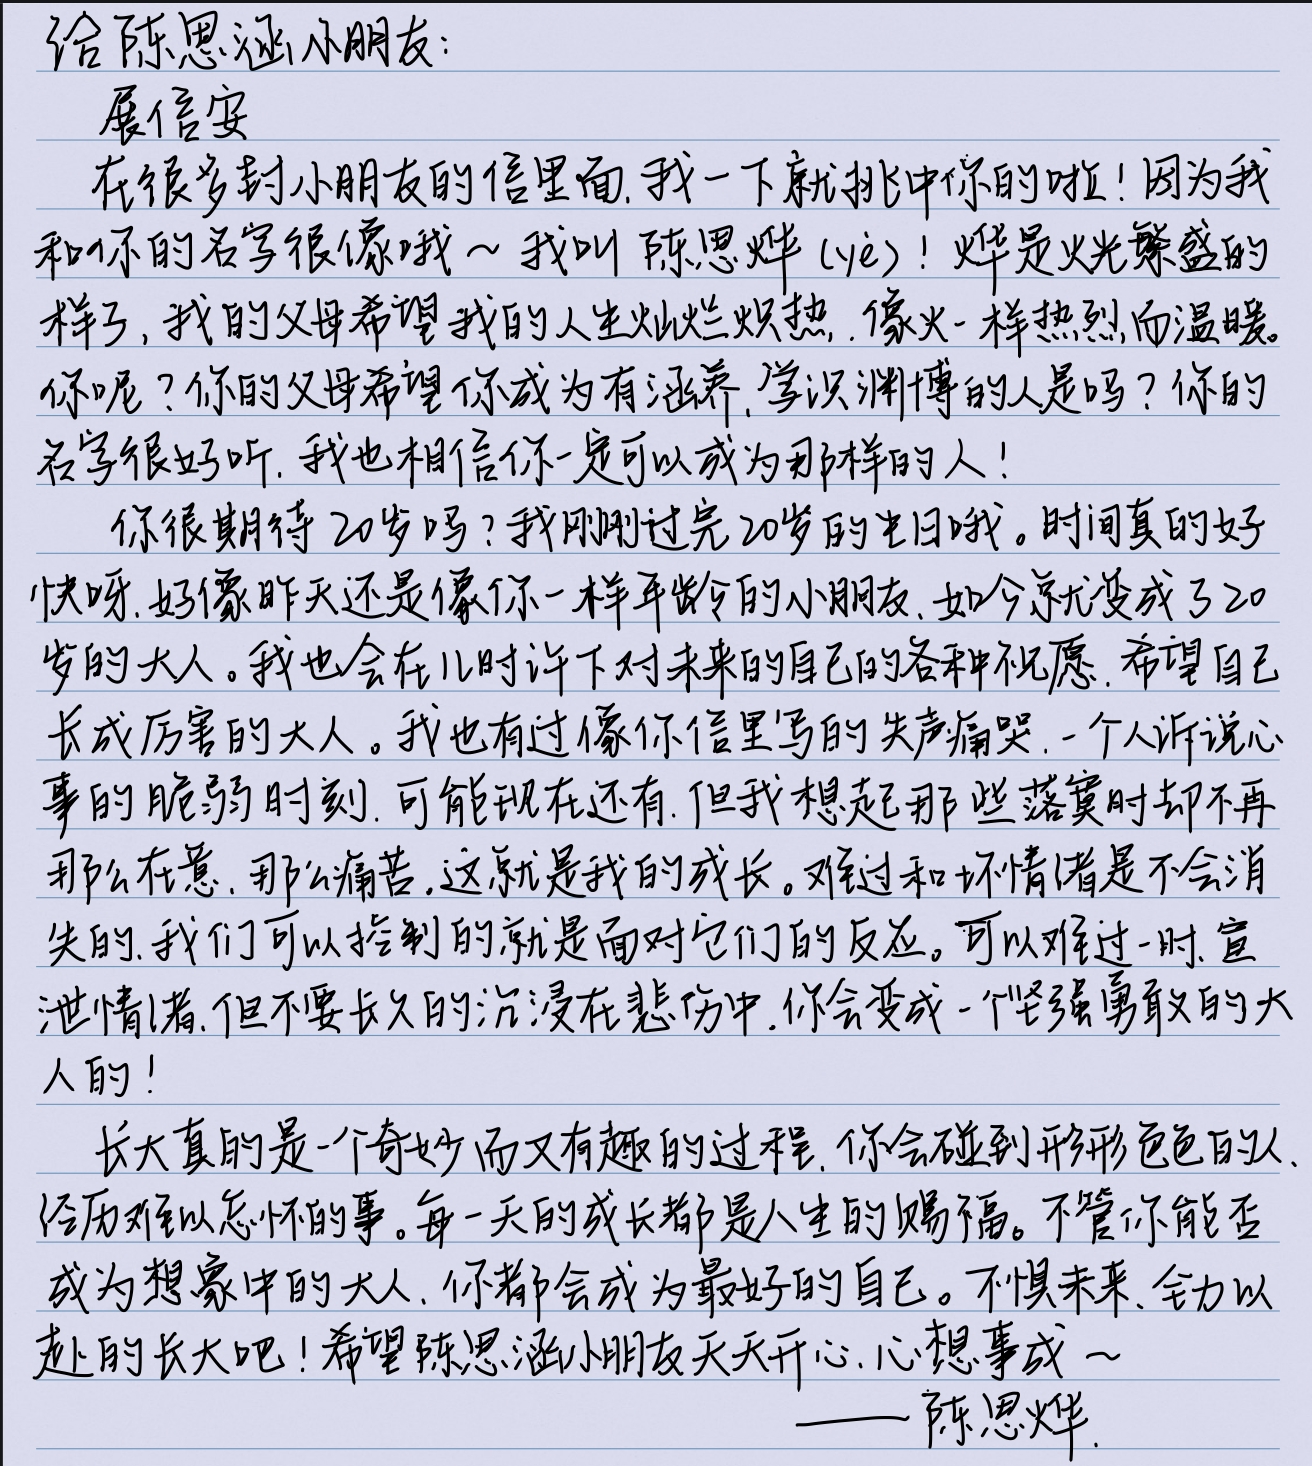 给陈思涵小朋友：
展信安
在很多封小朋友的信里面，我一下就挑中你的啦！因为我
和你的名字很像哦～我叫陈思烨（yè）！烨是火光繁盛的
样子，我的父母希望我的人生灿烂炽热，像火一样热烈而温暖。
你呢？你的父母希望你成为有涵养，学识渊博的人是吗？你的
名字很好听，我也相信你一定可以成为那样的人！
你很期待20岁吗？我刚刚过完20岁的生日哦。时间真的好
快呀，好像昨天还是像你一样年龄的小朋友，如今就变成了20
岁的大人。我也会在儿时许下对未来的自己的各种祝愿，希望自己
长成厉害的大人。我也有过像你信里写的失声痛哭，一个人诉说心
事的脆弱时刻，可能现在还有，但我想起那些落寞时却不再
那么在意，那么痛苦，这就是我的成长。难过和坏情绪是不会消
失的，我们可以控制的就是面对它们的反应。可以难过一时，宣
泄情绪，但不要长久的沉浸在悲伤中，你会变成一个坚强勇敢的大
人的！
长大真的是一个奇妙而又有趣的过程，你会碰到形形色色的人，
经历难以忘怀的事。每一天的成长都是人生的赐福。不管你能否
成为想象中的大人，你都会成为最好的自己。不惧未来，全力以
赴的长大吧！希望陈思涵小朋友天天开心，心想事成～
——陈思烨.